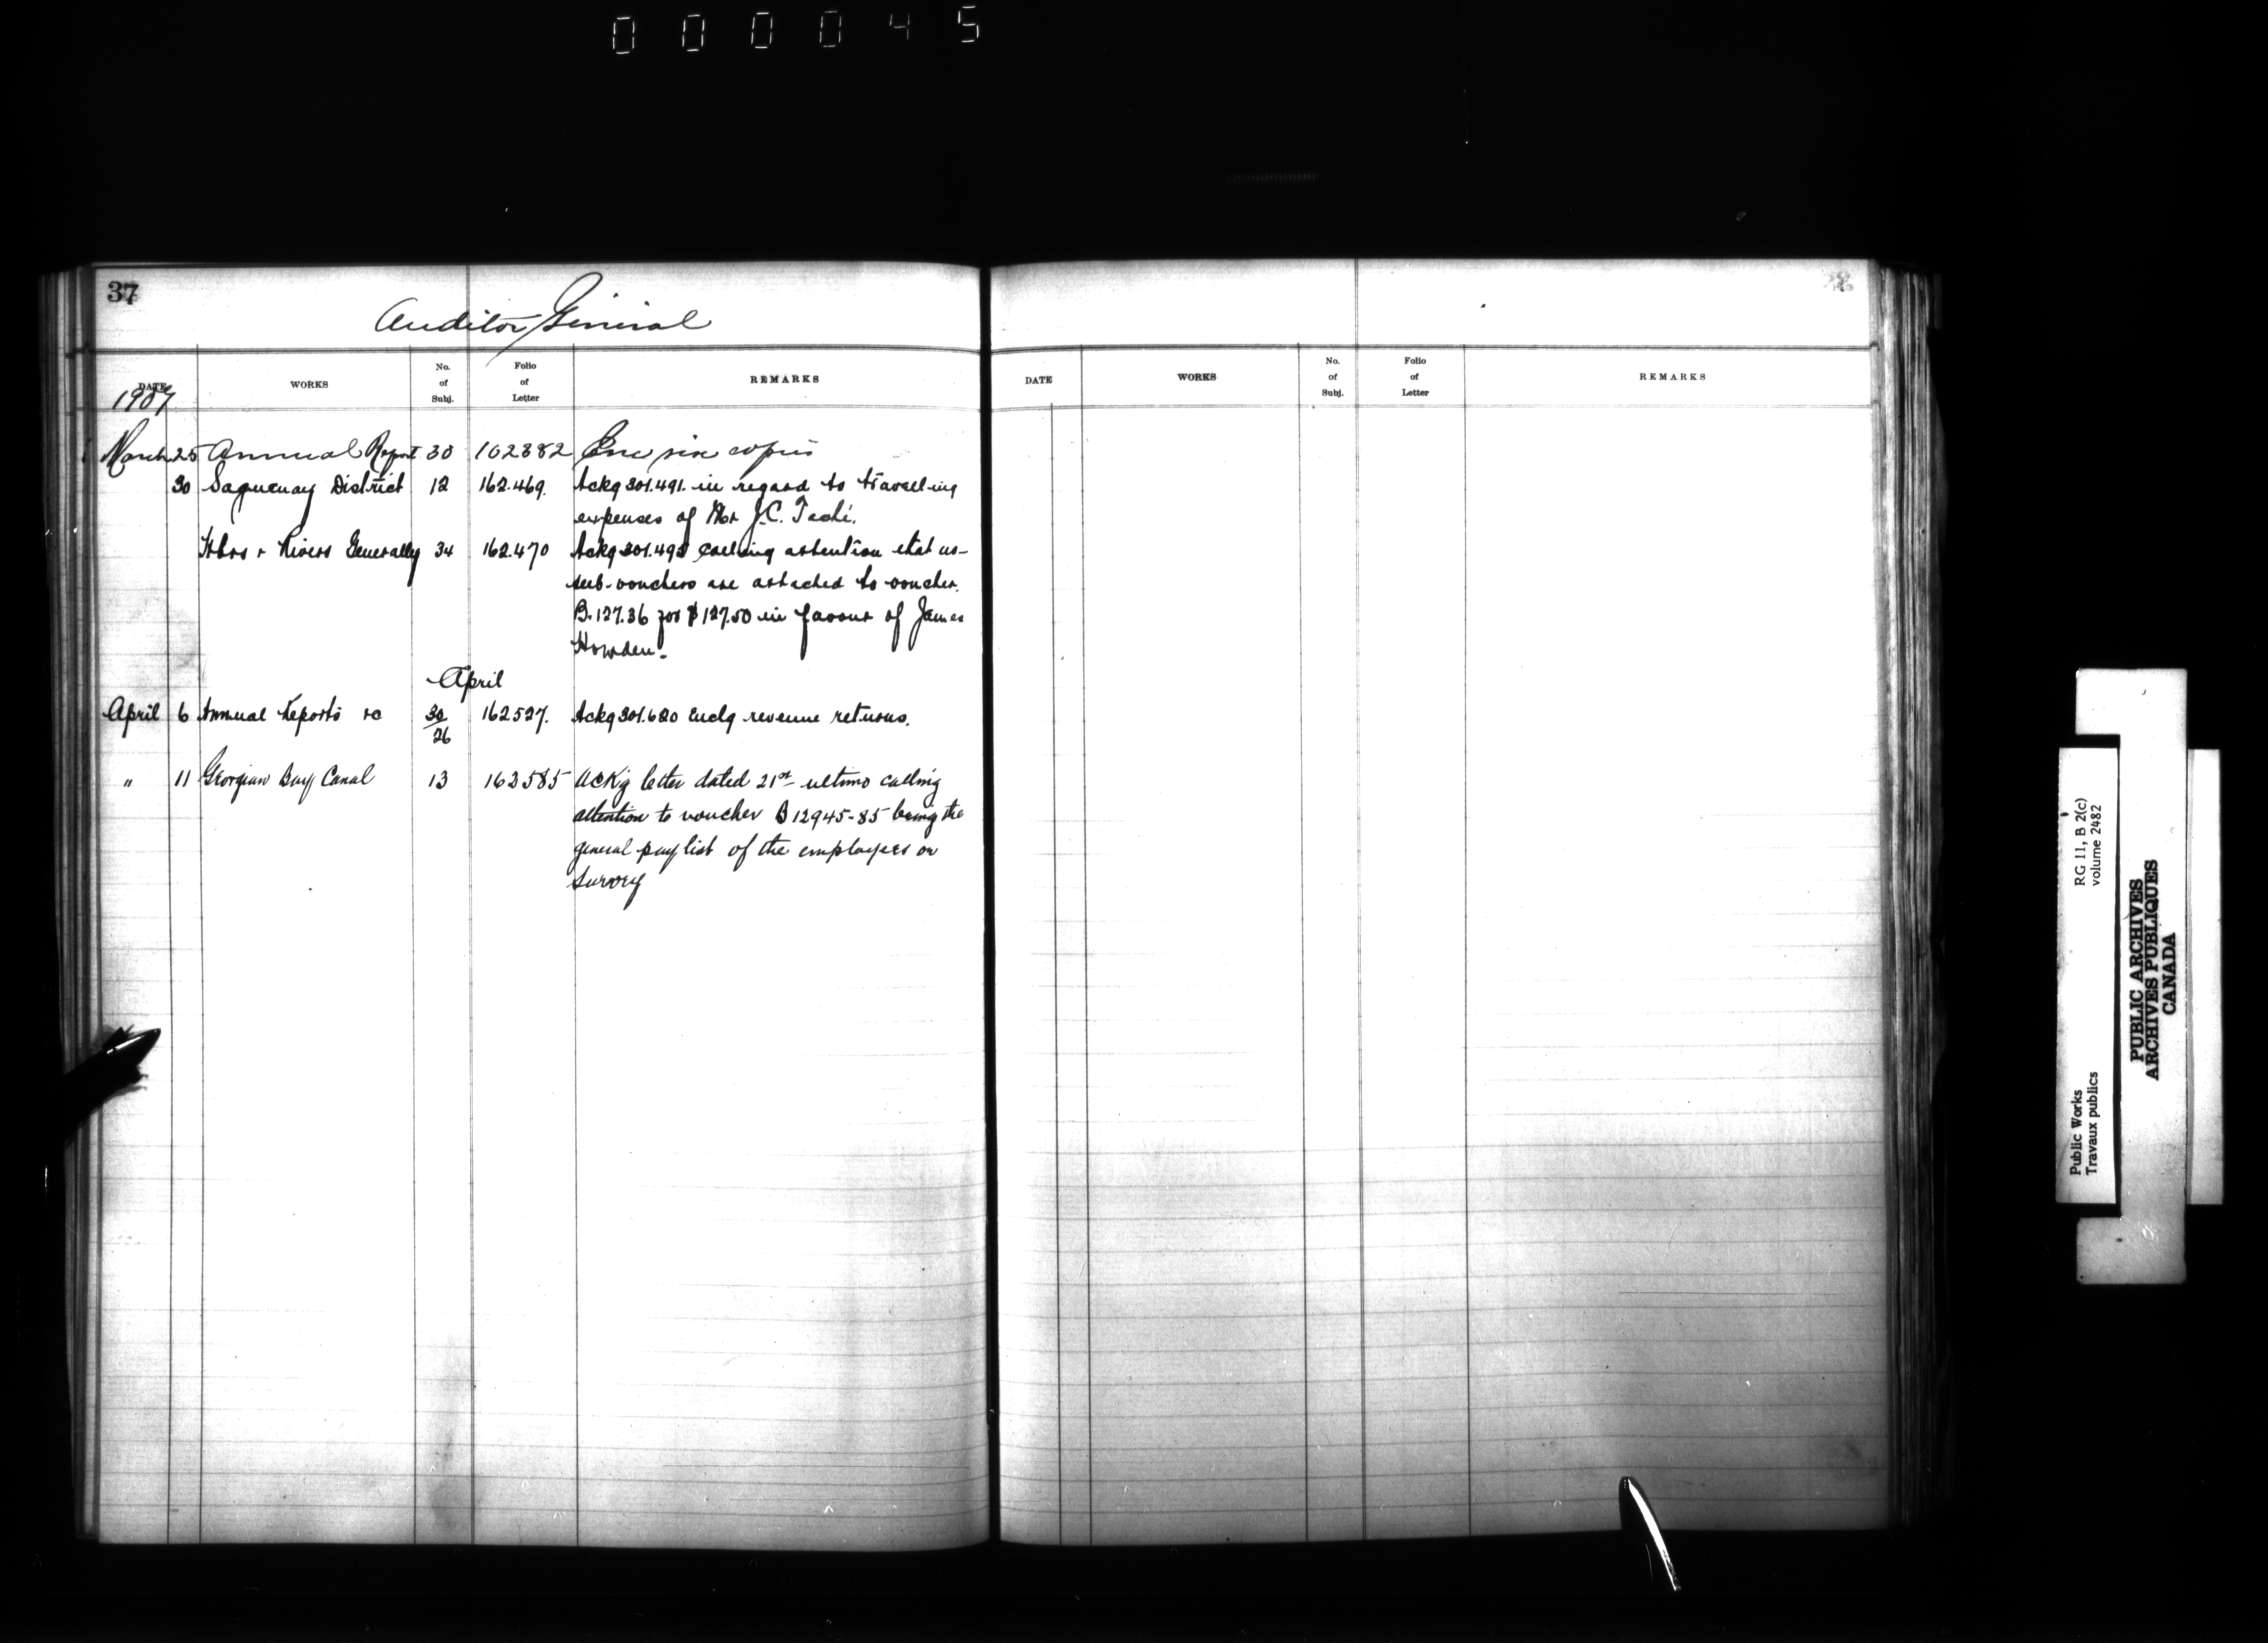 000045
37
Auditor General
DATE WORKS No. of Subj. Folio of Letter REMARKS
1907
March 25 Annual Report 30 162382 Enc six copies
30 Saguenay District 12 162.469. Ackg 301.491. in regard to travelling
expenses of Mr J.C. Taché.
Hbrs & Rivers Generally 34 162.470 Ackg 301.492 calling attention that no-
sub-vouchers are attached to voucher.
B.127.36 for $127.50 in favour of James
Howden.
April
April 6 Annual Reports &c 30/26 162527. Ackg 301.620 Enclg revenue returns.
" 11 Georgian Bay Canal 13 162585 Ackg letter dated 21st ultimo calling
attention to voucher B 12945-85 being the
general pay list of the employees on
Survey
DATE WORKS No. of Subj. Folio of Letter REMARKS
Public Works
Travaux publics
RG 11, B 2(c)
volume 2482
PUBLIC ARCHIVES
ARCHIVES PUBLIQUES
CANADA